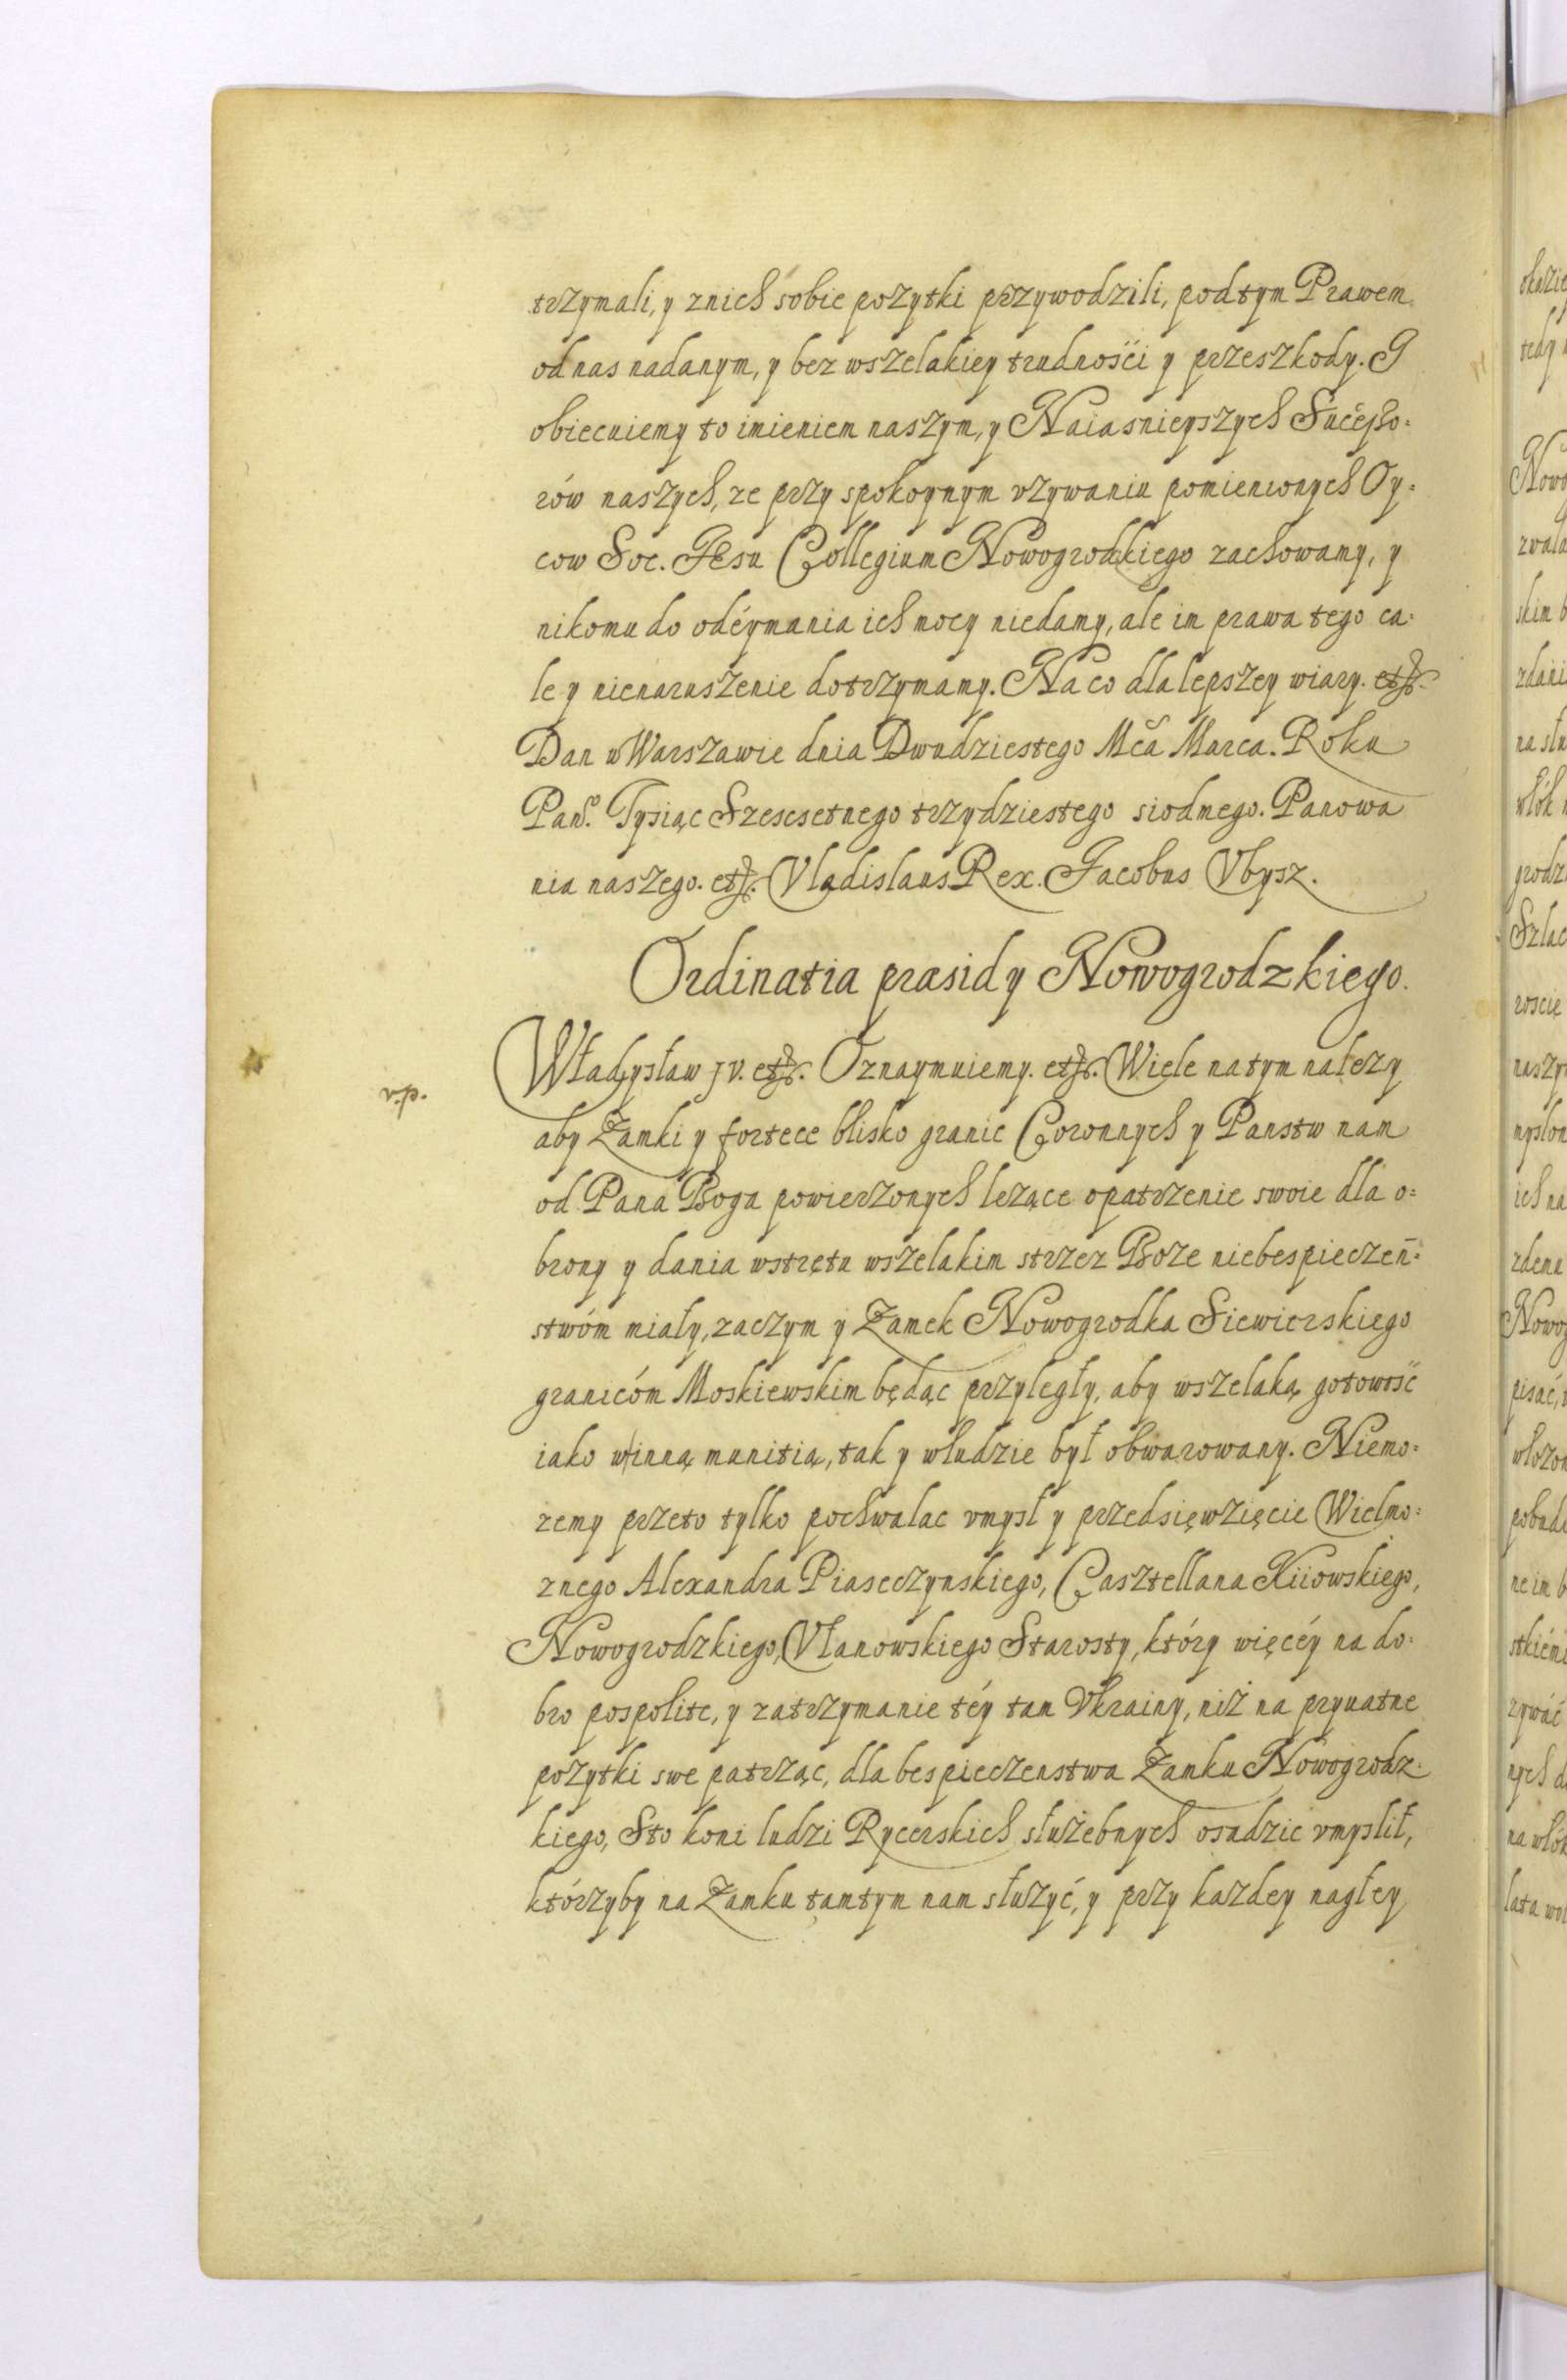 trzymali, y znich sobie pozytki przywodzili, podtym Prawem
od nas nadanym, y bez wszelakiey trudnosći y przeszkody. J
obiecuiemy to imieniem naszym, y Naiasnieyszych Sućeßo=
rów naszych, ze przy spokoynym vzywaniu pomienionych Oy=
cow Soc. JEsu Collegium Nowogrodzkiego zachowamy, y
nikomu do odéymania ich mocy niedamy, ale im prawa tego ca=
le y nienaruszenie dotrzymamy. Na co dla lepszey wiary. etc.
Dan w Warszawie dnia Dwudziestego Mca Marca. Roku
Pans. Tysiąc Szescsetnego trzydziestego siodmego. Panowa
nia naszego. etc. Vladislaus Rex. Jacobus Vbysz.
Ordinatia prasidy Nowogrodzkiego.
Władysław JV. etc. Oznaymuiemy. etc. Wiele natym nalezy
aby Zamki y fortece blisko granic Coronnych y Panstw nam
od Pana Boga powierzonych lezące opatrzenie swoie dla o=
brony y dania wstrętu wszelakim strzez Boze niebespieczeń=
stwóm miały, zaczym y Zamek Nowogrodka Siewierskiego
granicóm Moskiewskim będąc przyległy, aby wszelaką gotowość
iako w inną munitią, tak y wludzie był obwarowany. Niemo=
zemy przeto tylko pochwalac vmysł y przedsięwzięcie Wielmo=
znego Alexandra Piaseczynskiego, Casztellana Kiiowskiego,
Nowogrodzkiego, Vlanowskiego Starosty, który więcéy na do=
bro pospolite, y zatrzymanie téy tam Vkrainy, niż na pryuatne
pozytki swe patrząc, dla bespieczenstwa Zamku Nowogrodz=
kiego, Sto koni ludzi Rycerskich służebnych osadzic vmyslił,
którzyby na Zamku tamtym nam słuzyć, y przy kazdey nagłey